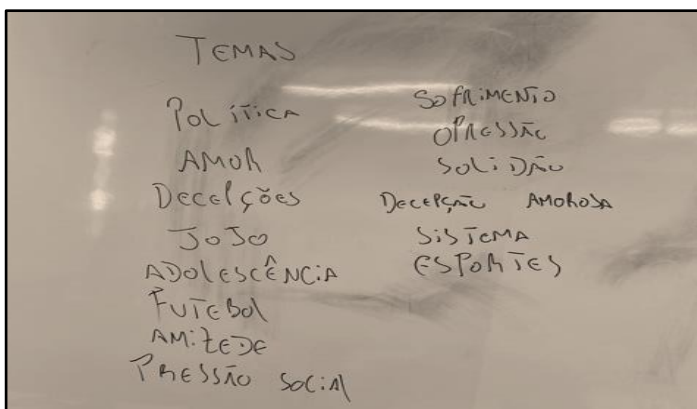 TEMAS
POLÍTICA
AMOR
DECEPÇÕES
JOJO
ADOLESCÊNCIA
FUTEBOL
AMIZEDE
PRESSÃO SOCIAL
SOFRIMENTO
OPRESSÃO
SOLIDÃO
DECEPÇÃO AMOROSA
SISTEMA
ESPORTES